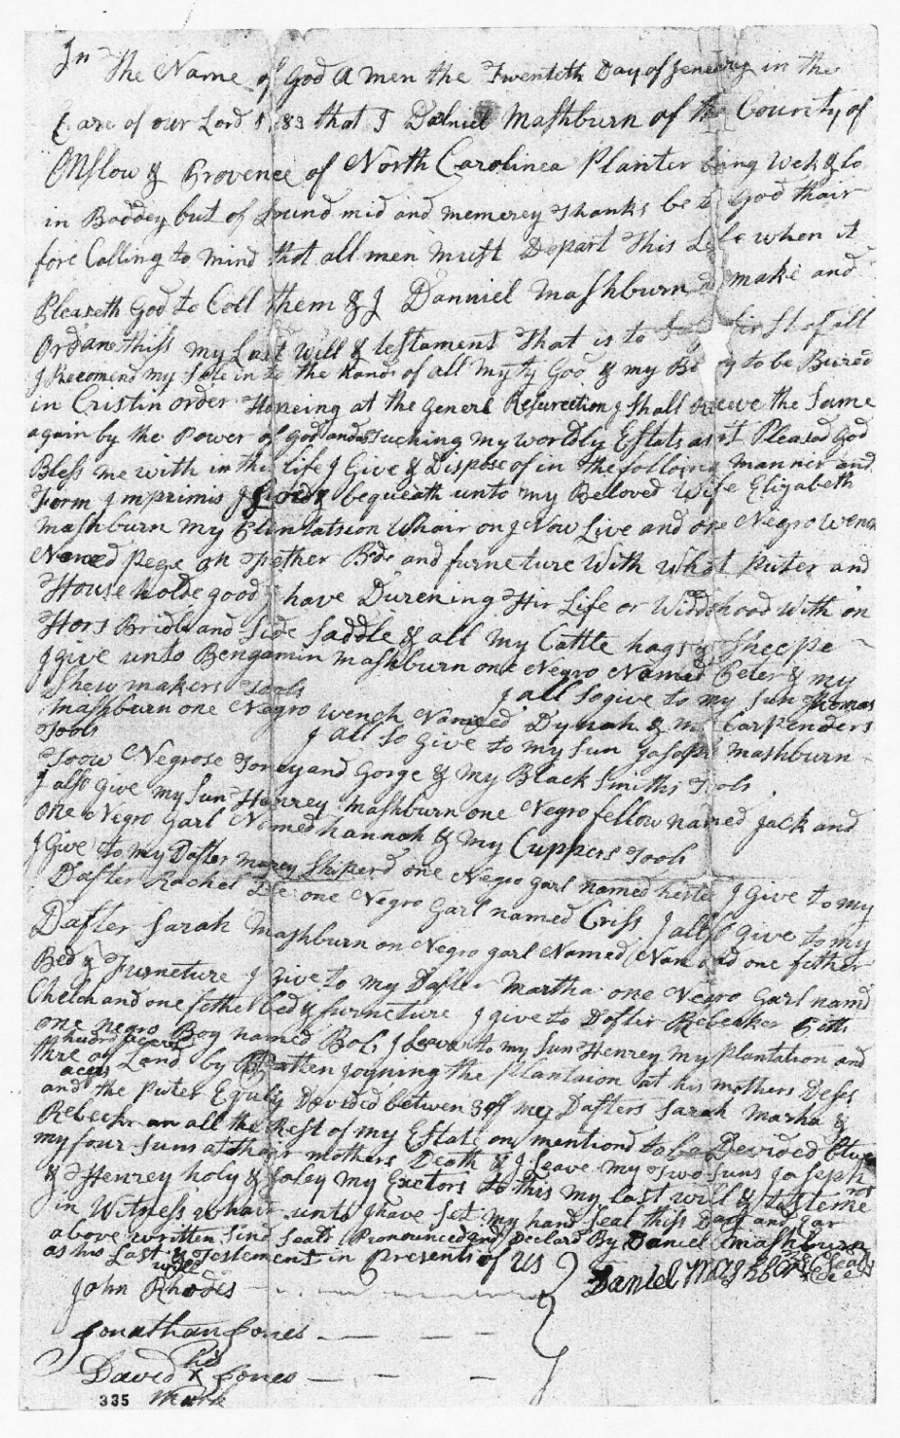 In The Name of God Amen the Twenteth Day of Jeneary in the
Eare of our Lord 1783 that I Dalniel Mashburn of the County of
Onslow & Provence of North Carolinea Planter being Wek & lo
in Boddey but of Sound mid and memerey Thanks be to God thair
fore Calling to mind that all men must Depart This Life when it
Pleaseth God to Coll them & J Danniel Mashburn make and
Ordane thiss my Last Will & testament That is to first of all
J Recomend my Sole in to the hands of all Myty God & my Body to be Bured
in Cristin order at the Generl Resurection J Shall Receve the Same
again by the Power of God and as Tuching my worldly Estate as it Pleased God
Bless me with in this life J Give & Dispose of in the following manner and
Form Jmprimis J bequeath unto my Beloved Wife Elizabeth
Mashburn my Plentatsion Whair on J Now Live and one Negro wench
Named Pege on Fether Bede and furneture With what Puter and
House holde good J have Durening Hir Life or Widdohood with on
Hors Bridle and Side Saddle & all my Cattle hags & Sheepe
J give unto Bengamin Mashburn one Negro Named Peter & my
Shew makers Tools J all so give to my Sun Thomas
Mashburn one Negro wench Nameed Dynah & my Carpenders
Tools J all so Give to my Sun Joseph Mashburn
Toow Negrose Toney and Gorge & My Black Smiths Tools
J also Give my Sun Henrey Mashburn one Negro fellow named Jack and
one Negro Garl Named hannah & my Cuppers Tools
J Give to my Dafter marey Shiperd one Negro garl named hester J Give to my
Dafter Rachel one Negro Garl named Criss J also Give to my
Dafter Sarah Mashburn on Negro garl Named Nan and one fether
Bed & Furneture J give to my Dafter Martha one Negro Garl namd
Chelch and one fether bed & furneture J give to Dafter Rebecker
one negro Boy named Bob J Leave to my Sun Henrey my Plantation and
hudrd acers
thre of Land by Patten joyning the Plantaion at his mothers Deses
aces
and the Puter Equly Devided betwen my Dafters Sarah Marha &
Rebeckr an all the Rest of my Estate on mentiond to be Devided Betwen
my four Suns at thair mothers Death & J Leave my Two Suns Joseph
& Henrey holy & Soley my Exectors to this my last will & testeme
in Witness whair unto J have Set my hand Seal thiss Day and yar
above written Sind Seald Pronounced and Declard By Daniel Mashburn
as his Last will & Testement in Presents of US Daniel Mashborn Seal
John Rhodes
Jonathan Jones
his
David X Jones
mark
335